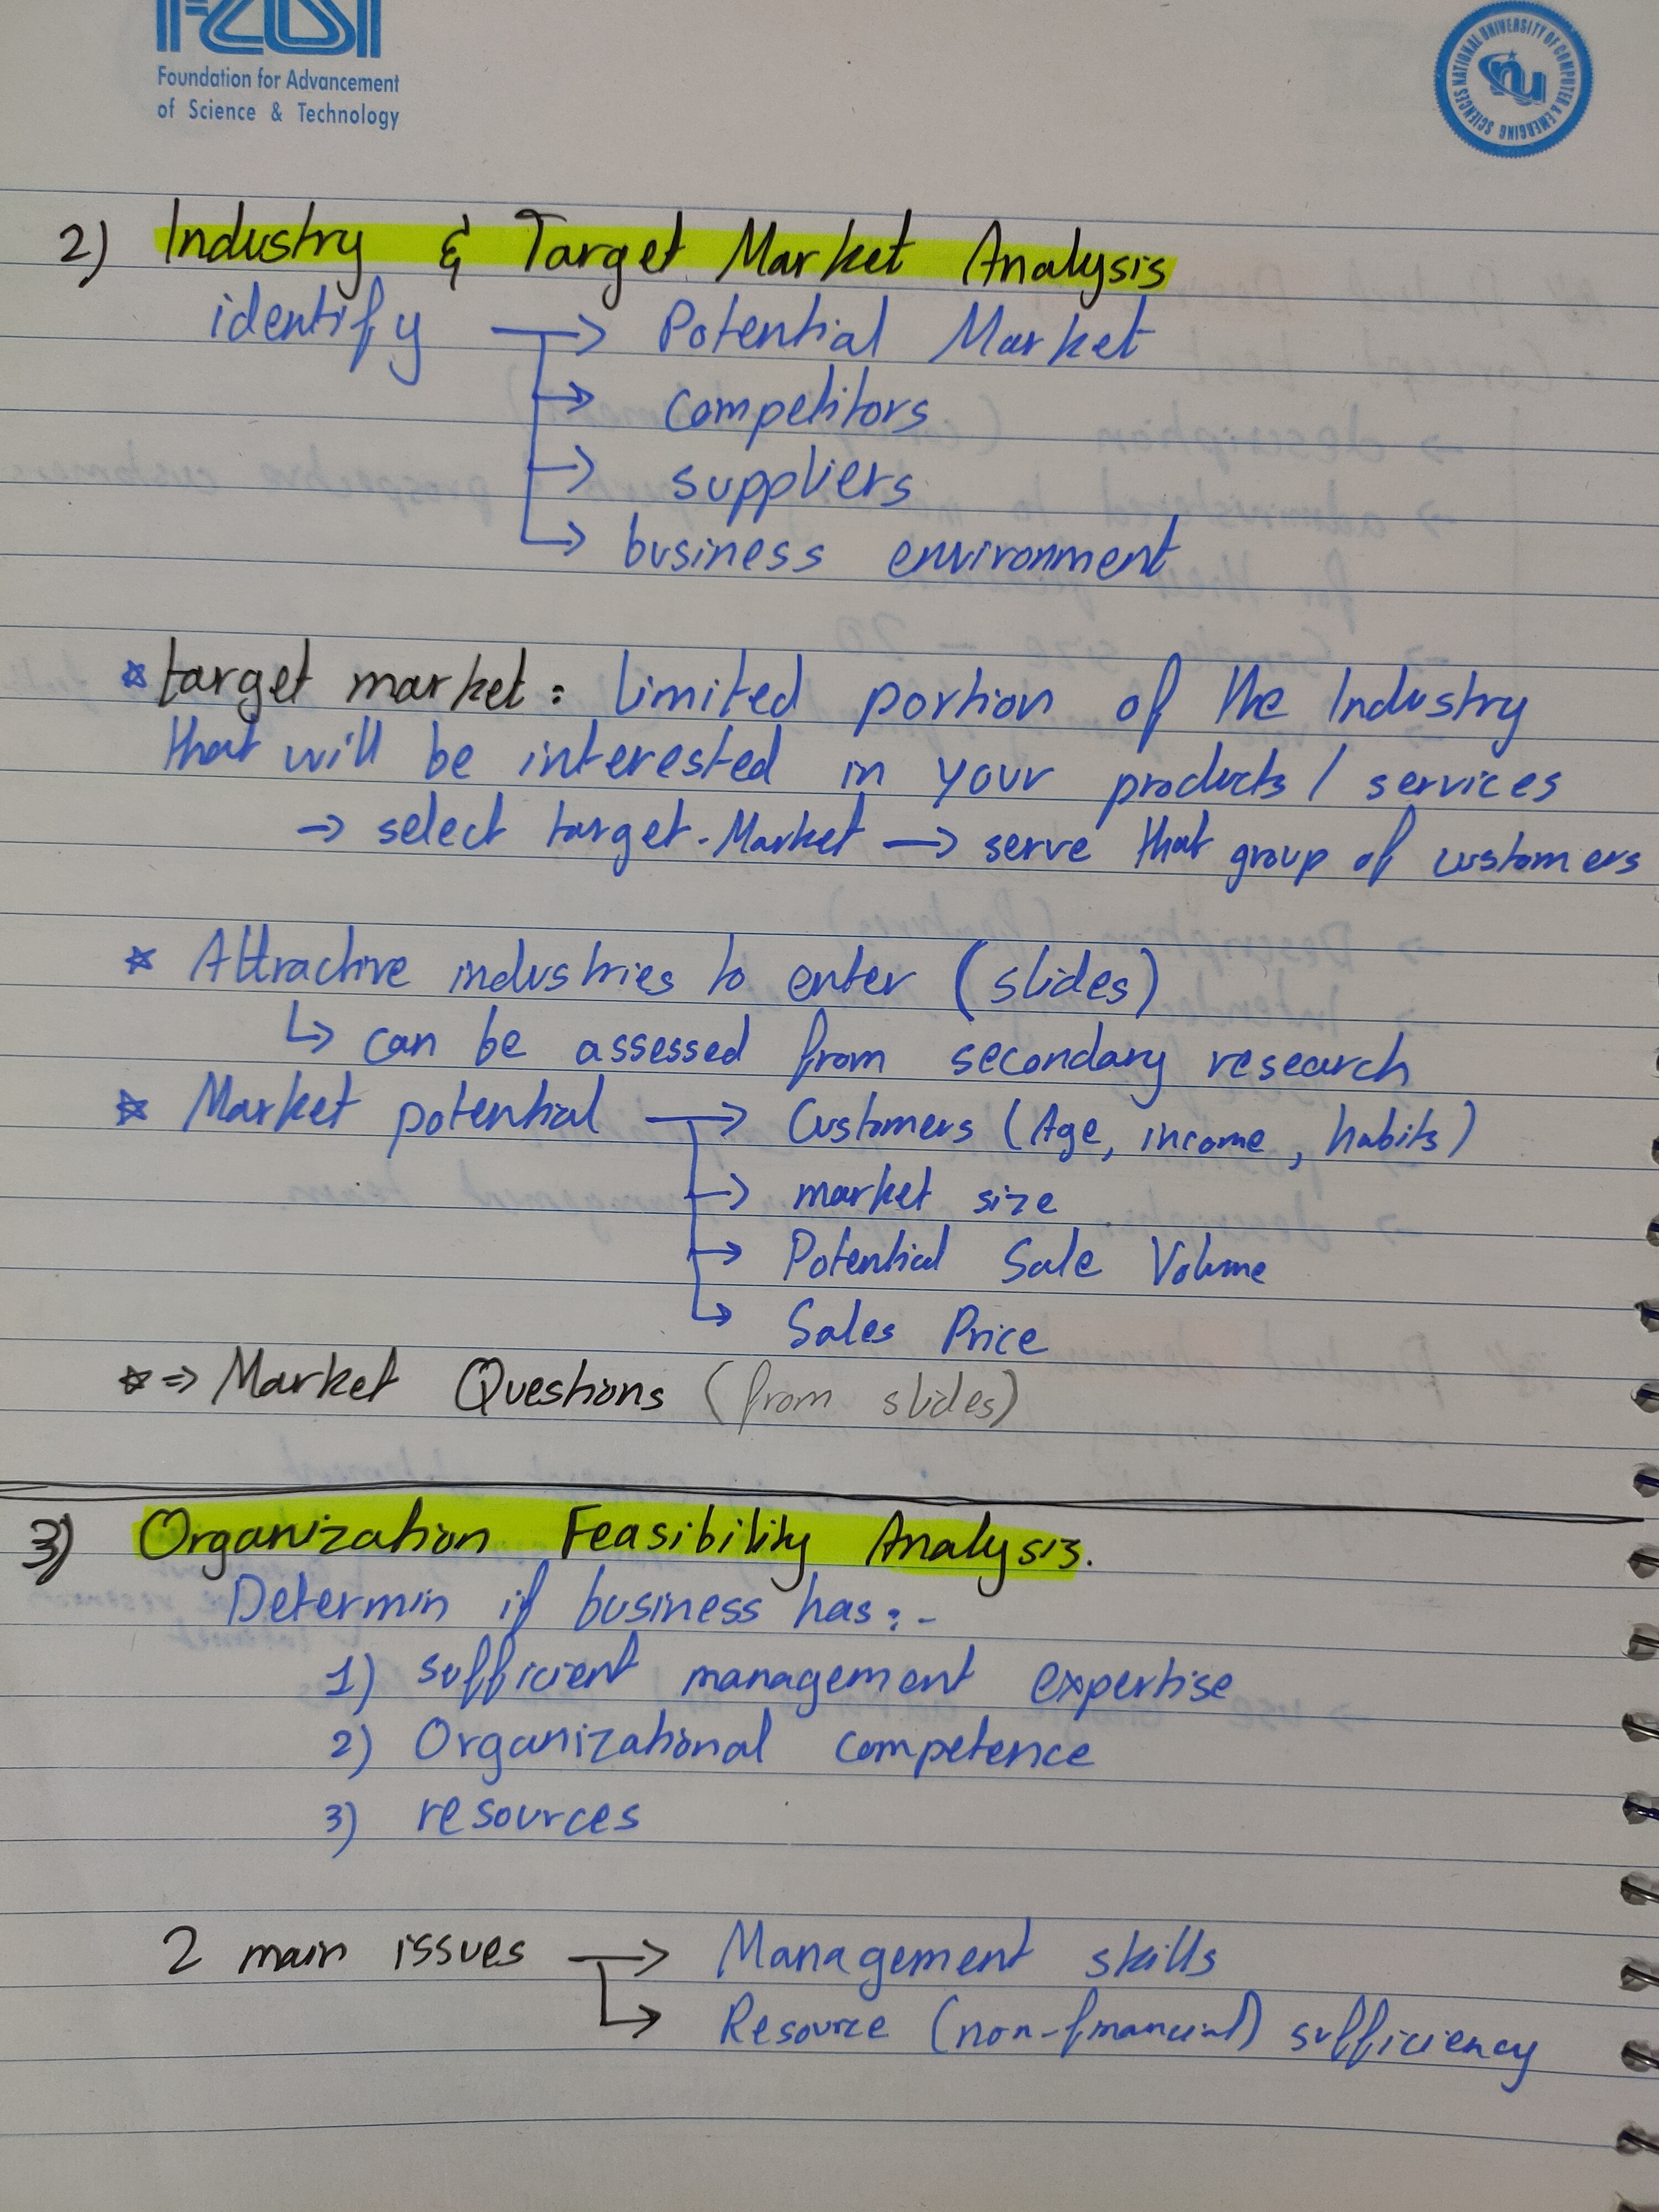 Foundation for Advancement
of Science & Technology
NATIONAL UNIVERSITY OF COMPUTER & EMERGING SCIENCES
nu
2) Industry & Target Market Analysis
identify → Potential Market
→ competitors
→ suppliers
→ business environment
* target market: limited portion of the Industry
that will be interested in your products / services
→ select target-Market → serve that group of customers
* Attractive industries to enter (slides)
↳ can be assessed from secondary research
* Market potential → Customers (Age, income, habits)
→ market size
→ Potential Sale Volume
↳ Sales Price
* ⇒ Market Questions (from slides)
3) Organization Feasibility Analysis.
Determin if business has:-
1) sufficient management expertise
2) Organizational competence
3) resources
2 main issues → Management skills
↳ Resource (non-financial) sufficiency